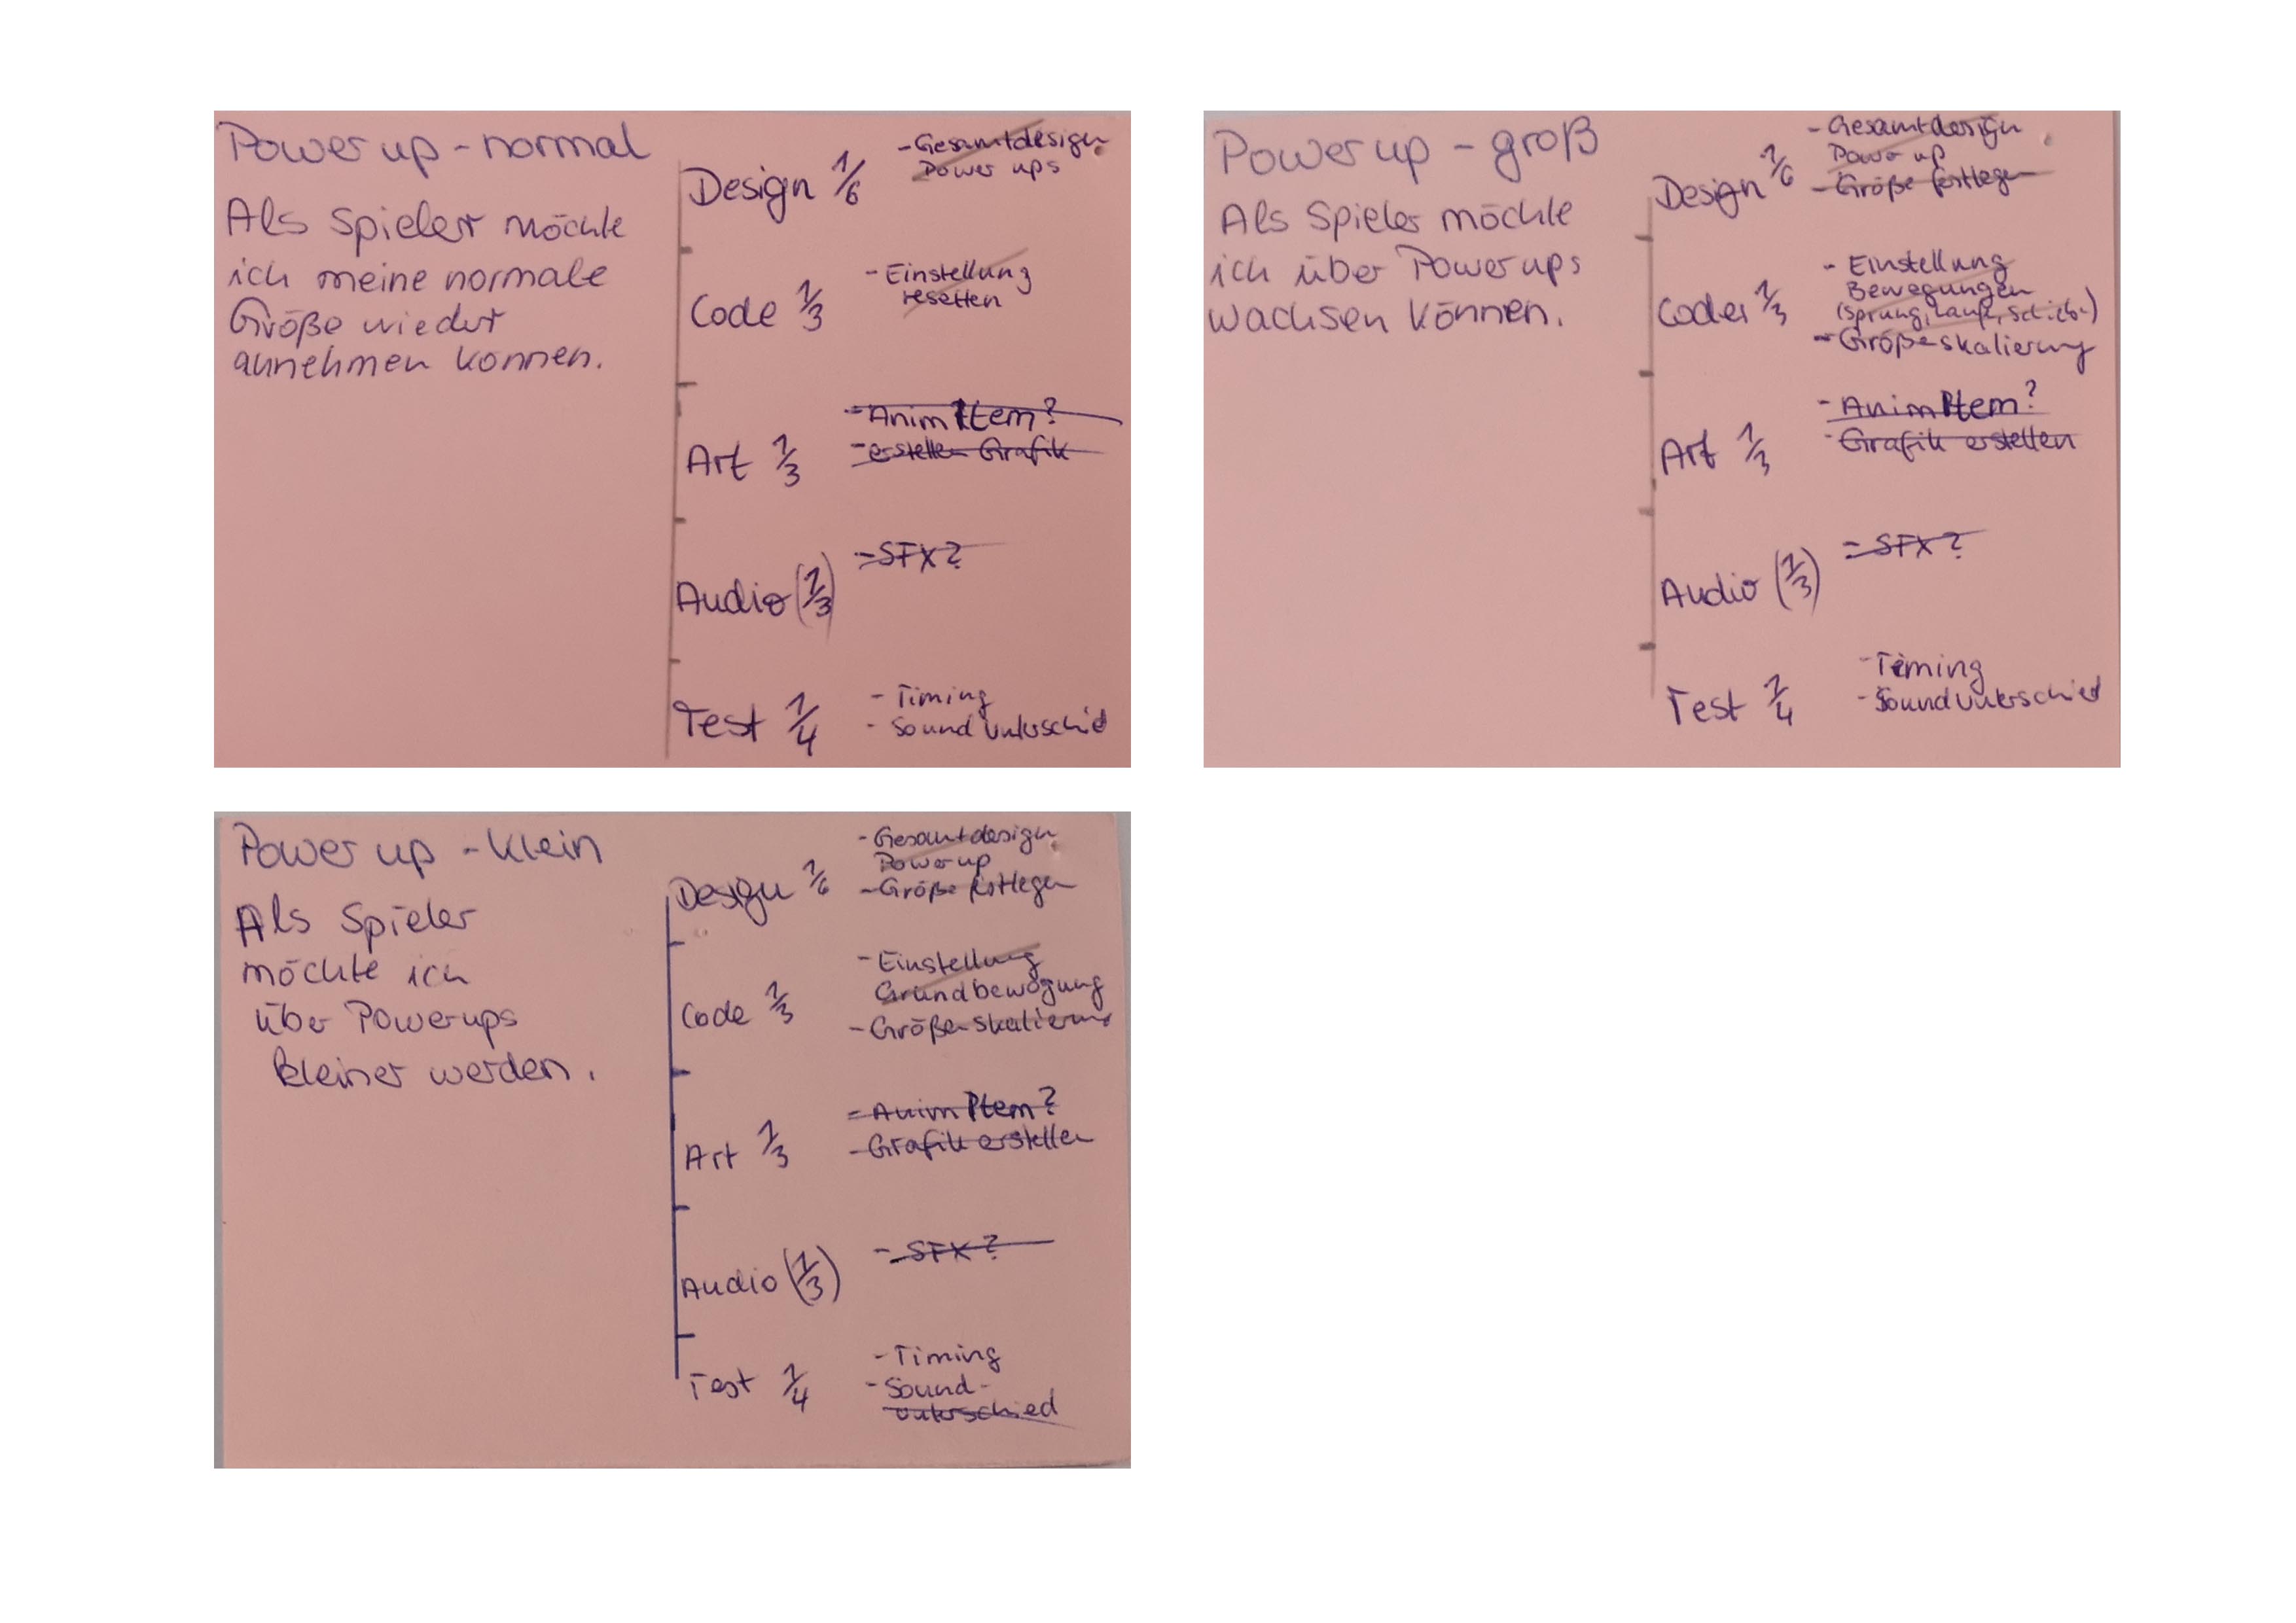 Power up - normal
Als Spieler möchte
ich meine normale
Größe wieder
annehmen können.
Design 1/6
- Gesamtdesign
Power ups
Code 1/3
- Einstellung
resetten
Art 1/3
- Anim Item?
- erstellen Grafik
Audio (1/3)
- SFX?
Test 1/4
- Timing
- Sound Unterschied
Power up - groß
Als Spieler möchte
ich über Power ups
wachsen können.
Design 1/6
- Gesamtdesign
Power up
- Größe festlegen
Code 1/3
- Einstellung
Bewegungen
(Sprung, Lauf, Schieb.)
- Größeskalierung
Art 1/3
- Anim Item?
- Grafik erstellen
Audio (1/3)
- SFX?
Test 1/4
- Timing
- Sound Unterschied
Power up - klein
Als Spieler
möchte ich
über Powerups
kleiner werden.
Design 1/6
- Gesamtdesign
Power up
- Größe festlegen
Code 1/3
- Einstellung
Grundbewegung
- Größenskalierung
Art 1/3
- Anim Item?
- Grafik erstellen
Audio (1/3)
- SFX?
Test 1/4
- Timing
- Sound-
unterschied